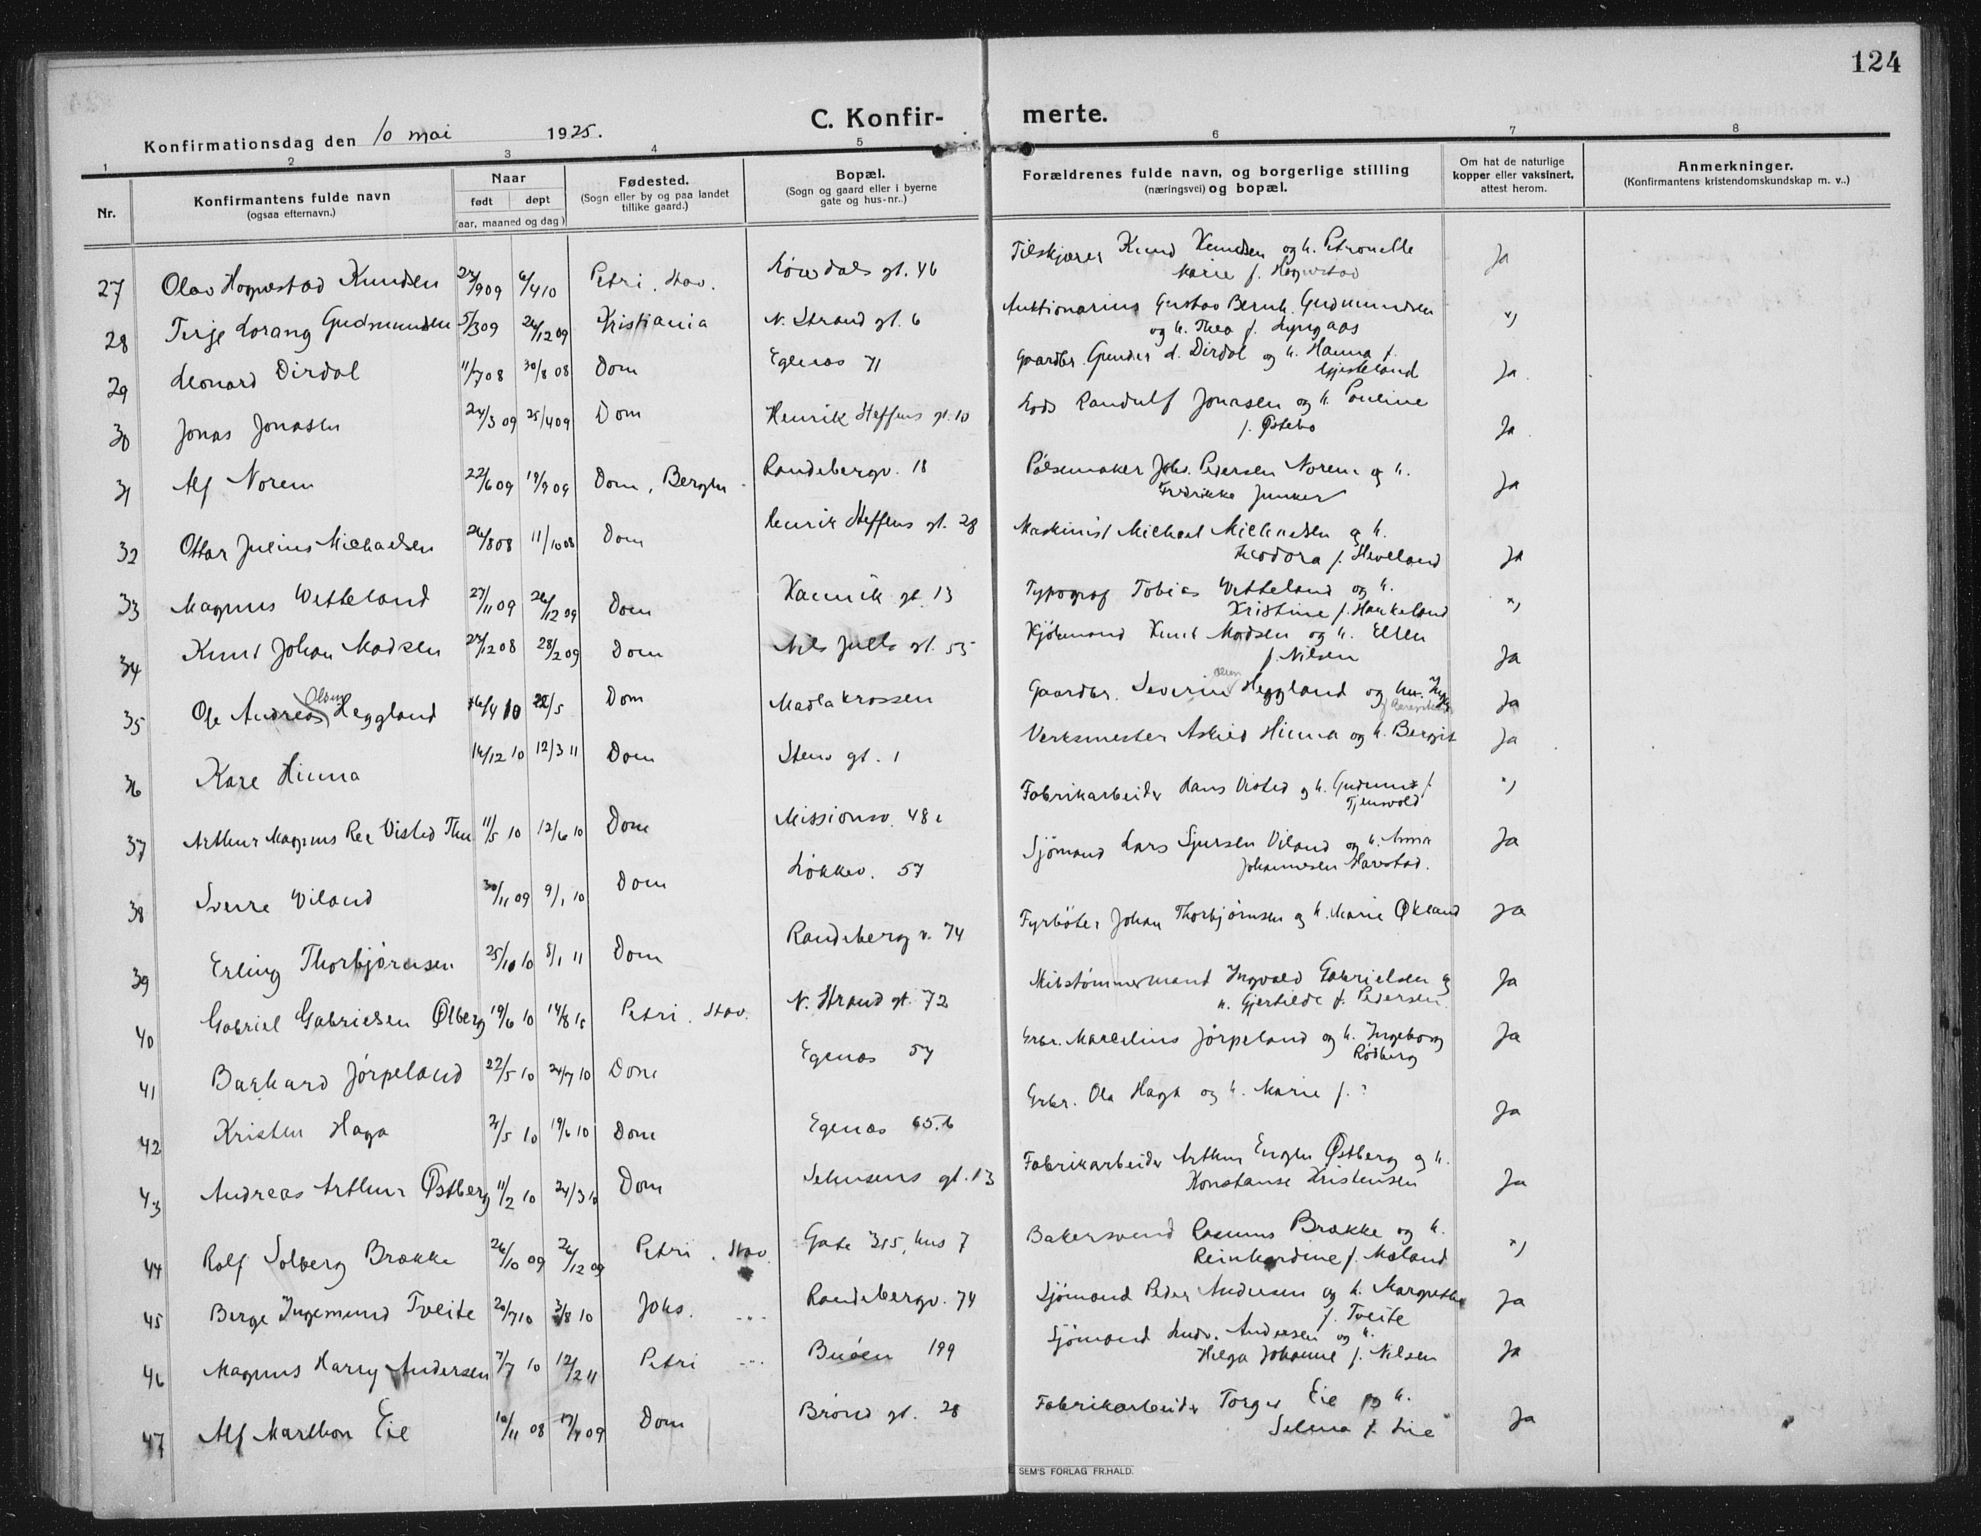 124
C. Konfir- merte.
Konfirmationsdag den 10 mai 1925.
1 2 3 4 5 6 7 8
Nr.
Konfirmantens fulde navn
(ogsaa efternavn.)
Naar
født døpt
(aar, maaned og dag)
Fødested.
(Sogn eller by og paa landet
tillike gaard.)
Bopæl.
(Sogn og gaard eller i byerne
gate og hus-nr..)
Forældrenes fulde navn, og borgerlige stilling
(næringsvei) og bopæl.
Om hat de naturlige
kopper eller vaksinert,
attest herom.
Anmerkninger.
(Konfirmantens kristendomskundskap m. v..)
27 Olav Hognestad Knudsen 6/4 10 Petri. Stav. Løvdals gt. 46 Knud Knudsen og h. Petronelle Ja
Marie f. Hognestad
28 Terje Lorang Gudmundsen 5/3 09 26/12 09 Kristiania N. Strand gt. 6 Auktionarius Gustav Bernh. Gudmundsen "
og h. Thea f. Lyngaas
29 Leonard Dirdal 11/7 08 30/8 08 Dom Egenæs 71 Gaardbr. Gunder L. Dirdal og h. Hanna f. Ja
Gjesteland
30 Jonas Jonasen 24/3 09 25/4 09 Dom Henrik Steffens gt. 10 Lods Randulf Jonasen og h. Pauline Ja
f. Østebø
31 Alf Norem 22/6 09 19/9 09 Dom, Randebergv. 18 Pølsemaker Johs. Pedersen Norem og h. Ja
Fredrikke Junker
32 Ottar Julius Michaelsen 26/8 08 11/10 08 Dom Henrik Steffens gt. 28 Maskinist Michael Michaelsen og h. Ja
Teodora f. Haveland
33 Magnus Vetteland 27/11 09 26/12 09 Dom Kannik gt. 13 Typograf Tobias Vetteland og h. "
Kristine f. Haukeland
34 Knut Johan Madsen 28/2 09 Dom Nils Juels gt. 55 Knut Madsen og h. Ellen Ja
f. Nilsen
35 Ole Andreas Olsen Heggland 16/4 10 22/5 Dom Madlakrossen Gaardbr. Severin Olsen Heggland og h. Ja
36 Kåre Hinna 14/12 10 12/3 11 Dom Stens gt. 1 Verksmester Askild Hinna og h. Bergit Ja
37 Arthur Magnus Ree Visted Thu 11/5 10 12/6 10 Dom Missionsv. 48 Fabrikarbeider Hans Visted og h. Gudrun f. "
Tjensvold
38 Sverre Viland 30/11 09 9/1 10 Dom Løkkev. 57 Sjømand Lars Sjursen Viland og h. Anna Ja
Johannesen Harestad.
39 Erling Thorbjørnsen 25/10 10 8/1 11 Dom Randeberg v. 74 Fyrbøter Johan Thorbjørnsen og h. Marie Økland Ja
40 Gabriel Gabrielsen Ølberg 19/6 10 14/8 10 Petri. Stav. N. Strand gt. 72 Skibstømmermand Ingvald Gabrielsen og Ja
h. Gjertilde f. Pedersen.
41 Barhard Jørpeland 22/5 10 24/7 10 Dom Egenæs 57 Marcelius Jørpeland og h. Ingeborg Ja
Rødberg
42 Kristen Haga 2/5 10 19/6 10 Dom Egenæs 65.b Ola Haga og h. Marie f. ? Ja
43 Andreas Arthur Østberg 11/2 10 24/3 10 Dom gt. 13 Fabrikarbeider Arthur Østberg og h. Ja
Konstanse Kristensen
44 Rolf Solberg Brække 26/10 09 26/12 09 Petri. Stav Gate 315, hus 7 Bakersvend Rasmus Brække og h. "
Reinhardine f. Maland
45 Berge Ingemund Tveite 20/7 10 3/8 10 Johs. ... Randebergv. 74 Sjømand Peder Andersen og h. Margrethe Ja
f. Tveite
46 Magnus Harry Andersen 7/7 10 12/2 11 Petri ... Buøen 199 Sjømand Ludv. Andersen og h. Ja
Helga Johanne f. Nilsen
47 Alf Marthon Eie 10/11 08 Dom Brønd gt. 28 Fabrikarbeider Torger Eie og h. Ja
Selma f. Lie
SEM'S FORLAG FR.HALD.